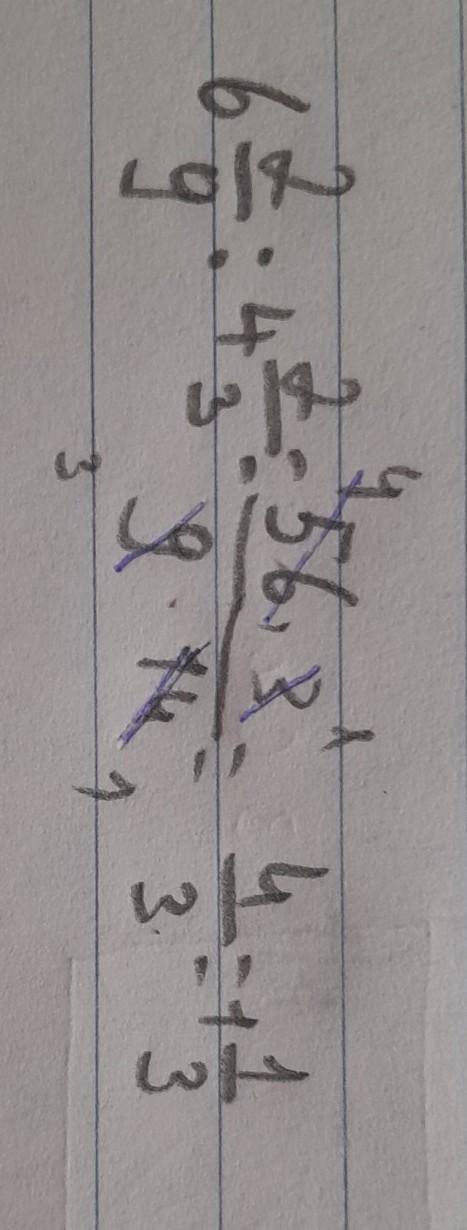 6 2/9 : 4 2/3 = 56 · 3 / 9 · 14 = 4/3 = 1 1/3
4 1
3 1